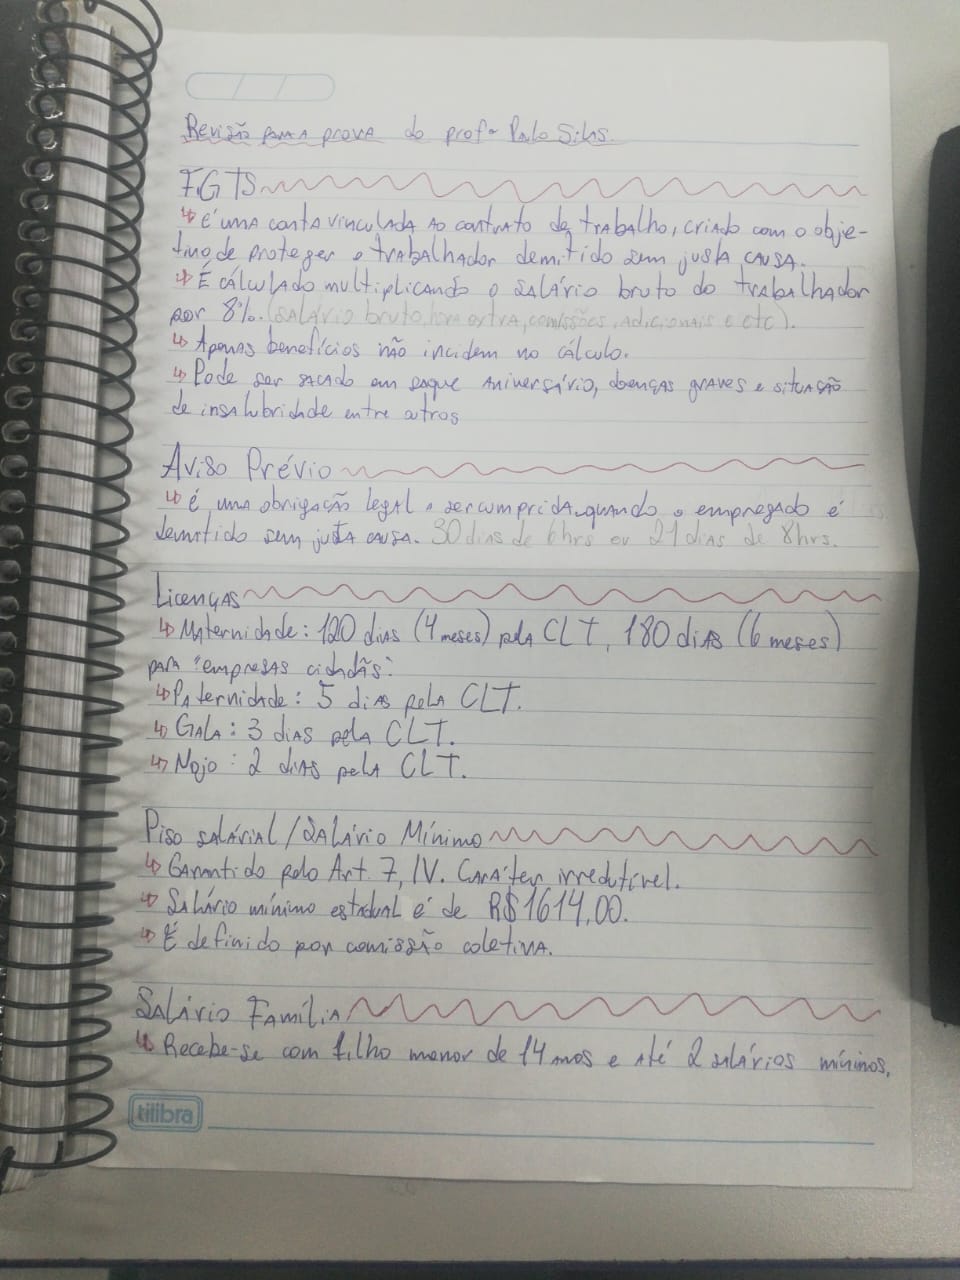 Revisão para a prova do profº Paulo Silas.
FGTS
↳ é uma conta vinculada ao contrato de trabalho, criado com o obje-
tivo de proteger o trabalhador demitido sem justa causa.
↳ É cálculado multiplicando o salário bruto do trabalhador
por 8%. (salário bruto, hora extra, comissões, adicionais e etc).
↳ Apenas benefícios não incidem no cálculo.
↳ Pode ser sacado em saque aniversário, doenças graves e situação
de insalubridade entre outros
Aviso Prévio
↳ é uma obrigação legal a ser cumprida, quando o empregado é
demitido sem justa causa. 30 dias de 6hrs ou 21 dias de 8hrs.
Licenças
↳ Maternidade: 120 dias (4 meses) pela CLT, 180 dias (6 meses)
para "empresas cidadãs".
↳ Paternidade: 5 dias pela CLT.
↳ Gala: 3 dias pela CLT.
↳ Nojo: 2 dias pela CLT.
Piso salárial/Salário Mínimo
↳ Garantido pelo Art. 7, IV. Caráter irredutível.
↳ Salário mínimo estadual é de R$1614,00.
↳ É definido por comissão coletiva.
Salário Família
↳ Recebe-se com filho menor de 14 anos e até 2 salários mínimos.
tilibra